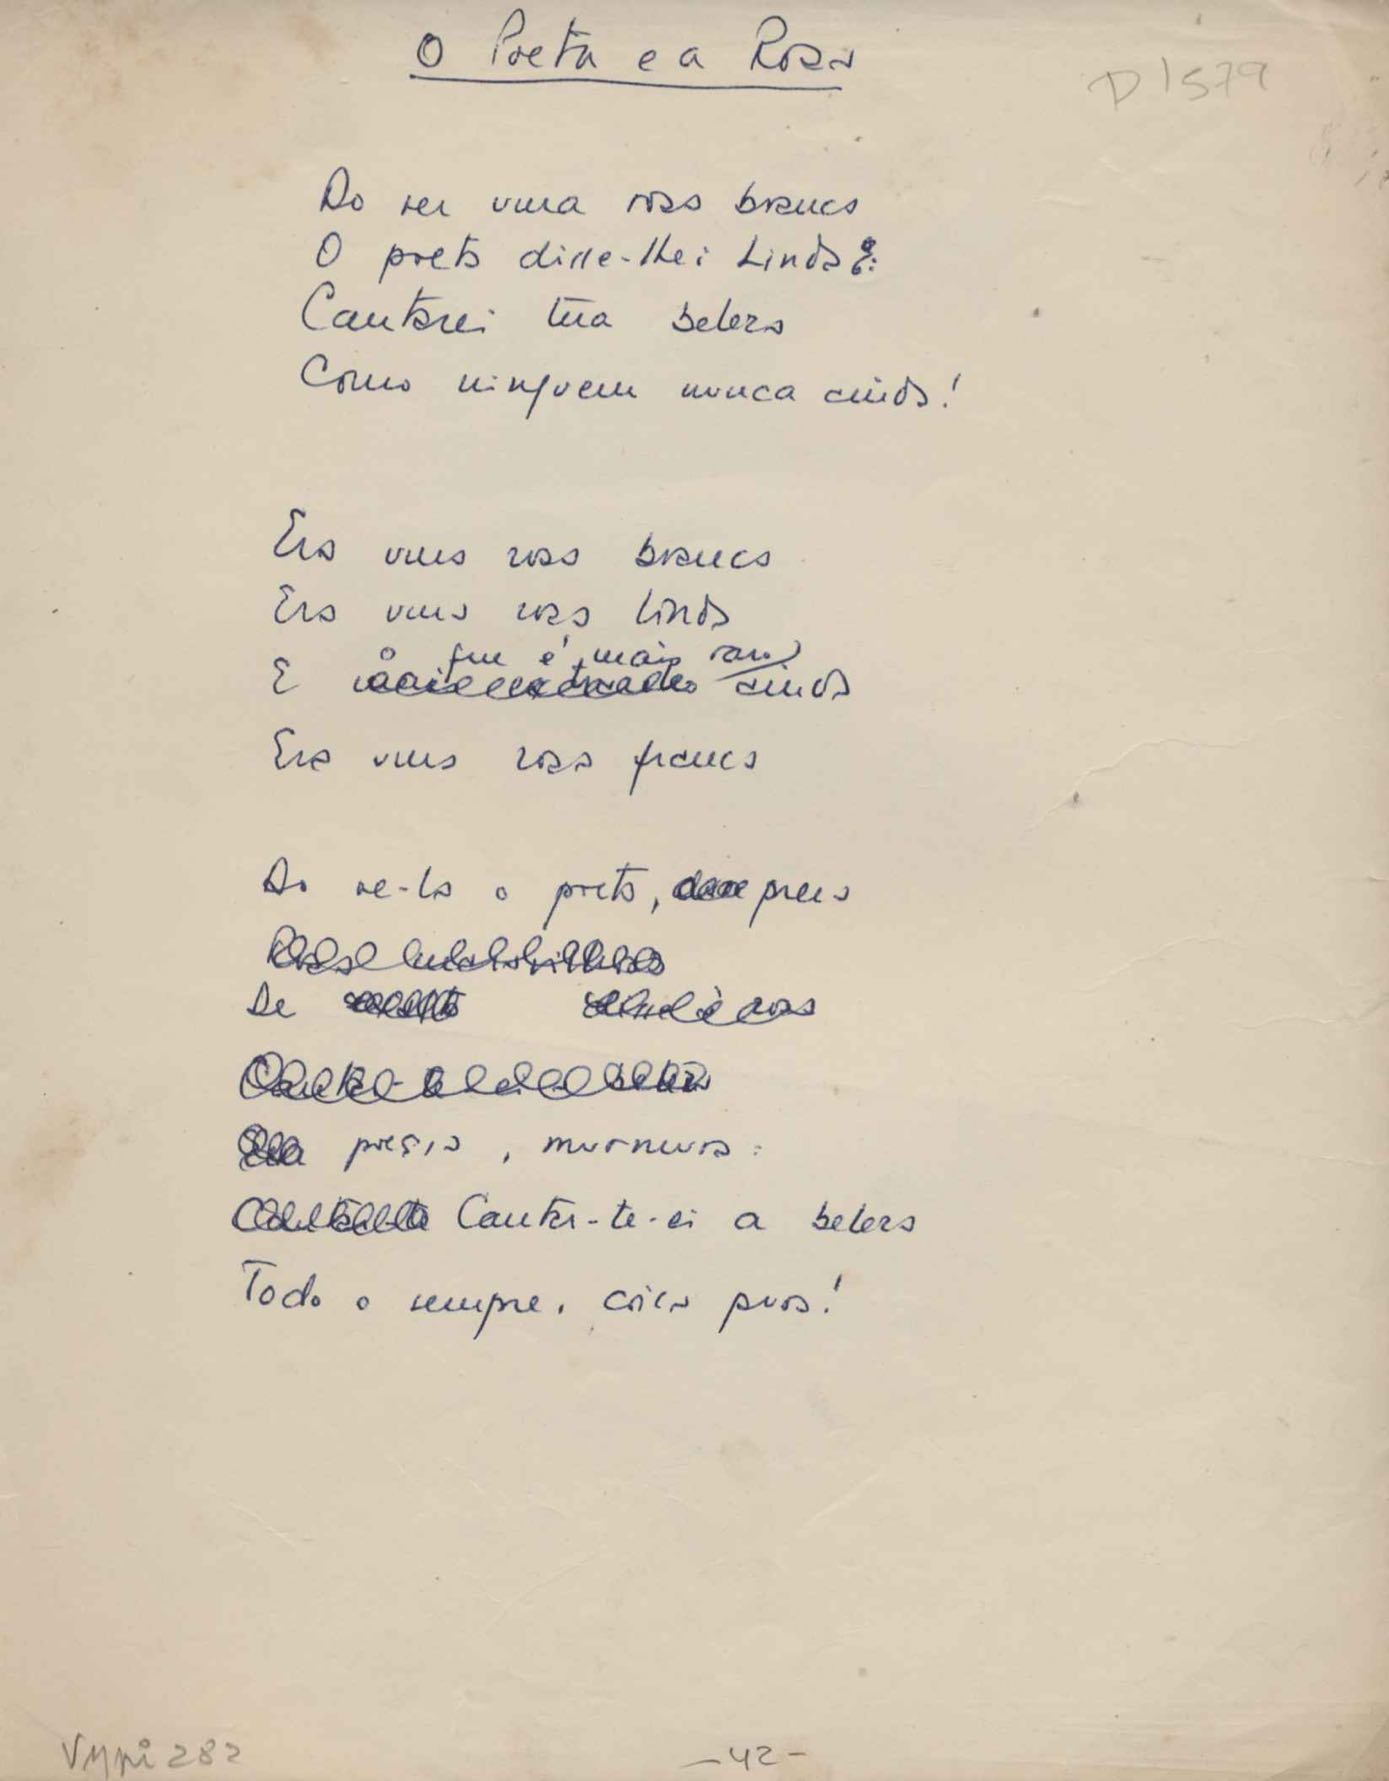 O Poeta e a Rosa
D 1579
Ao ver uma rosa branca
O poeta disse-lhe: Linda!
Cantarei tua beleza
Como ninguem nunca ainda!
Era uma rosa branca
Era uma rosa linda
o que é mais raro
E ainda
Era uma rosa franca
Ao ve-la o poeta, preso
De
poesia, murmura:
Cantar-te-ei a beleza
Todo o sempre, coisa pura!
Vmpi 282
-42-